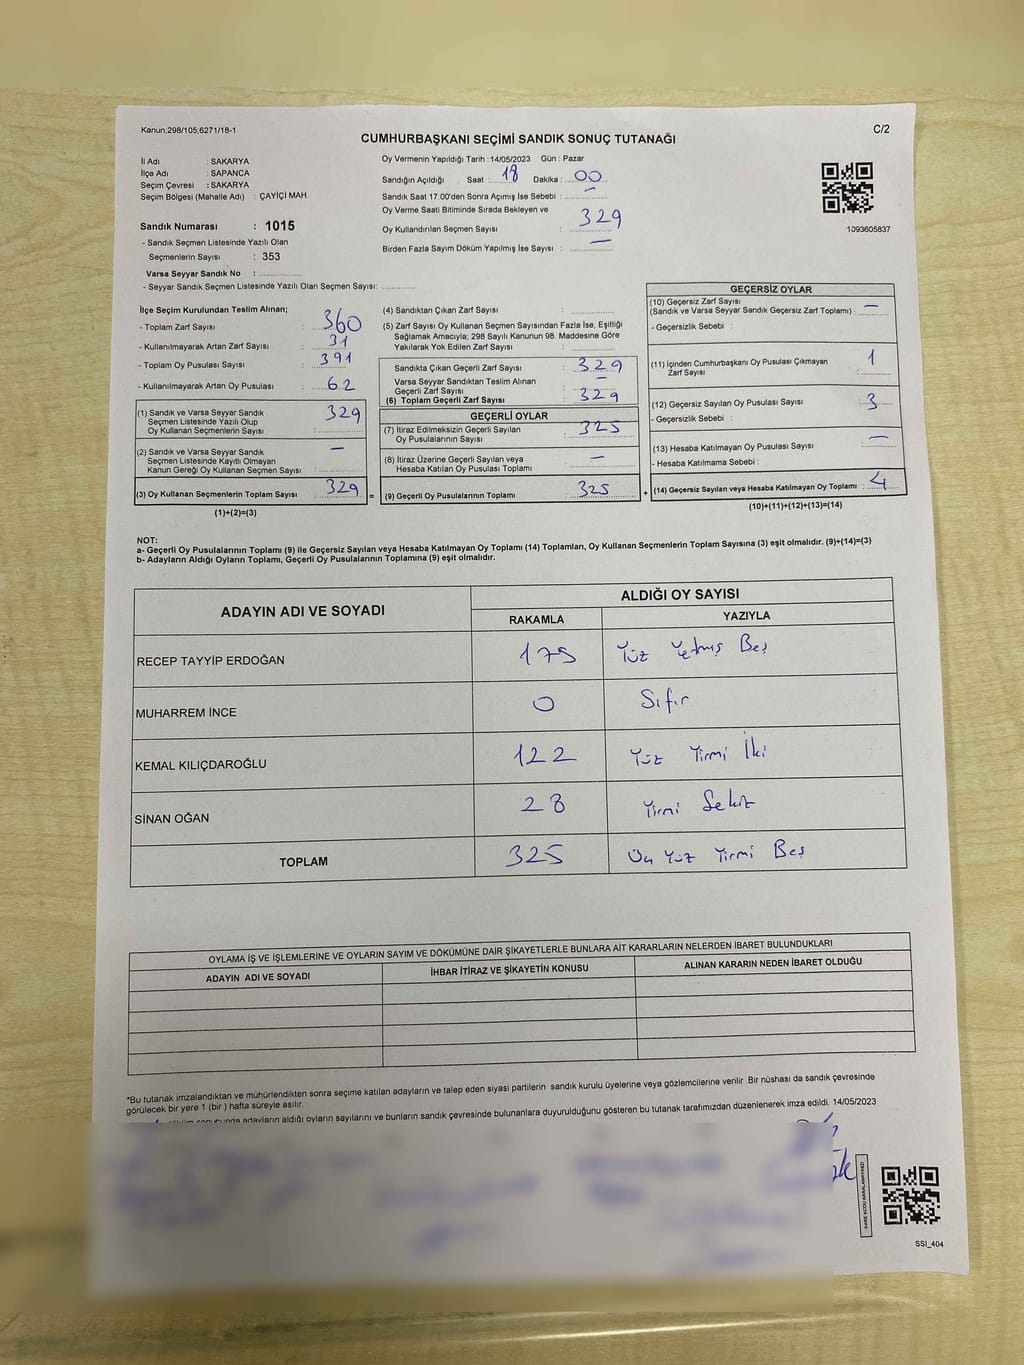 Kanun;298/105;6271/18-1
CUMHURBAŞKANI SEÇİMİ SANDIK SONUÇ TUTANAĞI
C/2
İl Adı : SAKARYA
İlçe Adı : SAPANCA
Seçim Çevresi : SAKARYA
Seçim Bölgesi (Mahalle Adı) : ÇAYİÇİ MAH.
Sandık Numarası : 1015
- Sandık Seçmen Listesinde Yazılı Olan
Seçmenlerin Sayısı : 353
Varsa Seyyar Sandık No :
- Seyyar Sandık Seçmen Listesinde Yazılı Olan Seçmen Sayısı:
Oy Vermenin Yapıldığı Tarih :14/05/2023 Gün : Pazar
Sandığın Açıldığı Saat : 18 Dakika : 00
Sandık Saat 17:00'den Sonra Açımış İse Sebebi : —
Oy Verme Saati Bitiminde Sırada Bekleyen ve
Oy Kullandırılan Seçmen Sayısı : 329
Birden Fazla Sayım Döküm Yapılmış İse Sayısı : —
1093605837
İlçe Seçim Kurulundan Teslim Alınan;
- Toplam Zarf Sayısı : 360
- Kullanılmayarak Artan Zarf Sayısı : 31
- Toplam Oy Pusulası Sayısı : 391
- Kullanılmayarak Artan Oy Pusulası : 62
(1) Sandık ve Varsa Seyyar Sandık
Seçmen Listesinde Yazılı Olup
Oy Kullanan Seçmenlerin Sayısı : 329
(2) Sandık ve Varsa Seyyar Sandık
Seçmen Listesinde Kayıtlı Olmayan
Kanun Gereği Oy Kullanan Seçmen Sayısı : —
(3) Oy Kullanan Seçmenlerin Toplam Sayısı : 329
(1)+(2)=(3)
=
(4) Sandıktan Çıkan Zarf Sayısı :
(5) Zarf Sayısı Oy Kullanan Seçmen Sayısından Fazla İse, Eşitliği
Sağlamak Amacıyla; 298 Sayılı Kanunun 98. Maddesine Göre
Yakılarak Yok Edilen Zarf Sayısı :
Sandıkta Çıkan Geçerli Zarf Sayısı : 329
Varsa Seyyar Sandıktan Teslim Alınan
Geçerli Zarf Sayısı : —
(6) Toplam Geçerli Zarf Sayısı : 329
GEÇERLİ OYLAR
(7) İtiraz Edilmeksizin Geçerli Sayılan
Oy Pusulalarının Sayısı : 325
(8) İtiraz Üzerine Geçerli Sayılan veya
Hesaba Katılan Oy Pusulası Toplamı : —
(9) Geçerli Oy Pusulalarının Toplamı : 325
+
GEÇERSİZ OYLAR
(10) Geçersiz Zarf Sayısı
(Sandık ve Varsa Seyyar Sandık Geçersiz Zarf Toplamı) : —
- Geçersizlik Sebebi :
(11) İçinden Cumhurbaşkanı Oy Pusulası Çıkmayan
Zarf Sayısı : 1
(12) Geçersiz Sayılan Oy Pusulası Sayısı : 3
- Geçersizlik Sebebi :
(13) Hesaba Katılmayan Oy Pusulası Sayısı : —
- Hesaba Katılmama Sebebi :
(14) Geçersiz Sayılan veya Hesaba Katılmayan Oy Toplamı : 4
(10)+(11)+(12)+(13)=(14)
NOT:
a- Geçerli Oy Pusulalarının Toplamı (9) ile Geçersiz Sayılan veya Hesaba Katılmayan Oy Toplamı (14) Toplamları, Oy Kullanan Seçmenlerin Toplam Sayısına (3) eşit olmalıdır. (9)+(14)=(3)
b- Adayların Aldığı Oyların Toplamı, Geçerli Oy Pusulalarının Toplamına (9) eşit olmalıdır.
ADAYIN ADI VE SOYADI
ALDIĞI OY SAYISI
RAKAMLA YAZIYLA
RECEP TAYYİP ERDOĞAN 175 Yüz Yetmiş Beş
MUHARREM İNCE 0 Sıfır
KEMAL KILIÇDAROĞLU 122 Yüz Yirmi İki
SİNAN OĞAN 28 Yirmi Sekiz
TOPLAM 325 Üç Yüz Yirmi Beş
OYLAMA İŞ VE İŞLEMLERİNE VE OYLARIN SAYIM VE DÖKÜMÜNE DAİR ŞİKAYETLERLE BUNLARA AİT KARARLARIN NELERDEN İBARET BULUNDUKLARI
ADAYIN ADI VE SOYADI İHBAR İTİRAZ VE ŞİKAYETİN KONUSU ALINAN KARARIN NEDEN İBARET OLDUĞU
*Bu tutanak imzalandıktan ve mühürlendikten sonra seçime katılan adayların ve talep eden siyasi partilerin sandık kurulu üyelerine veya gözlemcilerine verilir. Bir nüshası da sandık çevresinde
görülecek bir yere 1 (bir ) hafta süreyle asılır.
adayların aldığı oyların sayılarını ve bunların sandık çevresinde bulunanlara duyurulduğunu gösteren bu tutanak tarafımızdan düzenlenerek imza edildi. 14/05/2023
KARE KODU KARALAMAYINIZ!
SSI_404